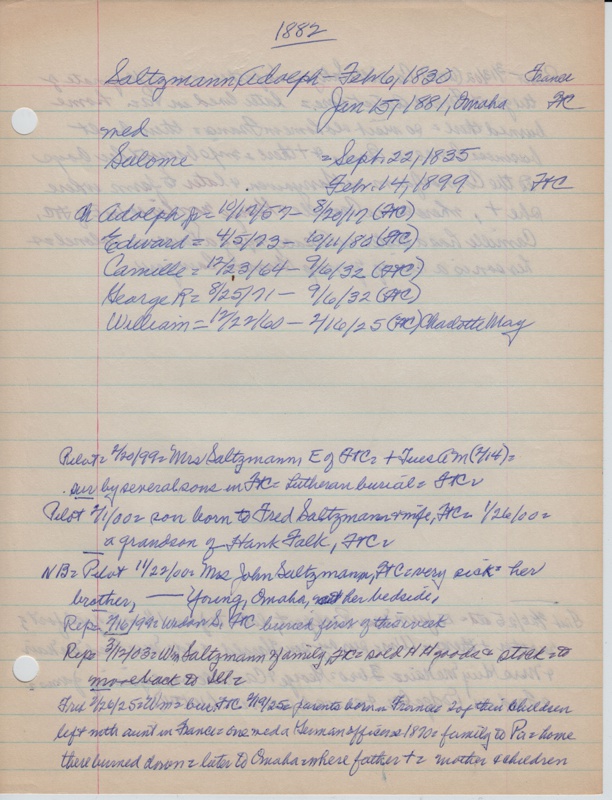 1882
Saltzmann, Adolph - Feb 6, 1830 France
Jan 15, 1881, Omaha FC
med
Salome = Sept. 22, 1835
Febr. 14, 1899 FC
Ch Adolph Jr = 10/17/57 - 8/20/17 (FC)
Edward = 4/5/73 - 10/11/80 (FC)
Camille = 12/23/64 - 9/6/32 (FC)
George R = 8/25/71 - 9/6/32 (FC)
William = 12/22/60 - 2/16/25 (FC) Charlotte May
Pilot = 2/20/99 = Mrs Saltzmann, E of FC = + Tues AM (2/14) =
sur by several sons in FC = Lutheran burial = FC =
Pilot 2/1/00 = son born to Fred Saltzmann + wife, FC = 1/26/00 =
a grandson of Hank Falk, FC =
NB = Pilot 11/22/00 = Mrs John Saltzmann, FC = very sick = her
brother, — Young, Omaha, at her bedside,
Rep = 2/16/99 = S, FC buried first of this week
Rep = 3/12/03 = Wm Saltzmann + family, FC = sold H H goods + stock = to
move back to Ill =
2/20/25 = Wm = FC 2/19/25 = parents born in France = 2 of their children
left with aunt in France = one med a German officer = 1870 = family to Pa = home
there burned down = later to Omaha = where father + = mother + children